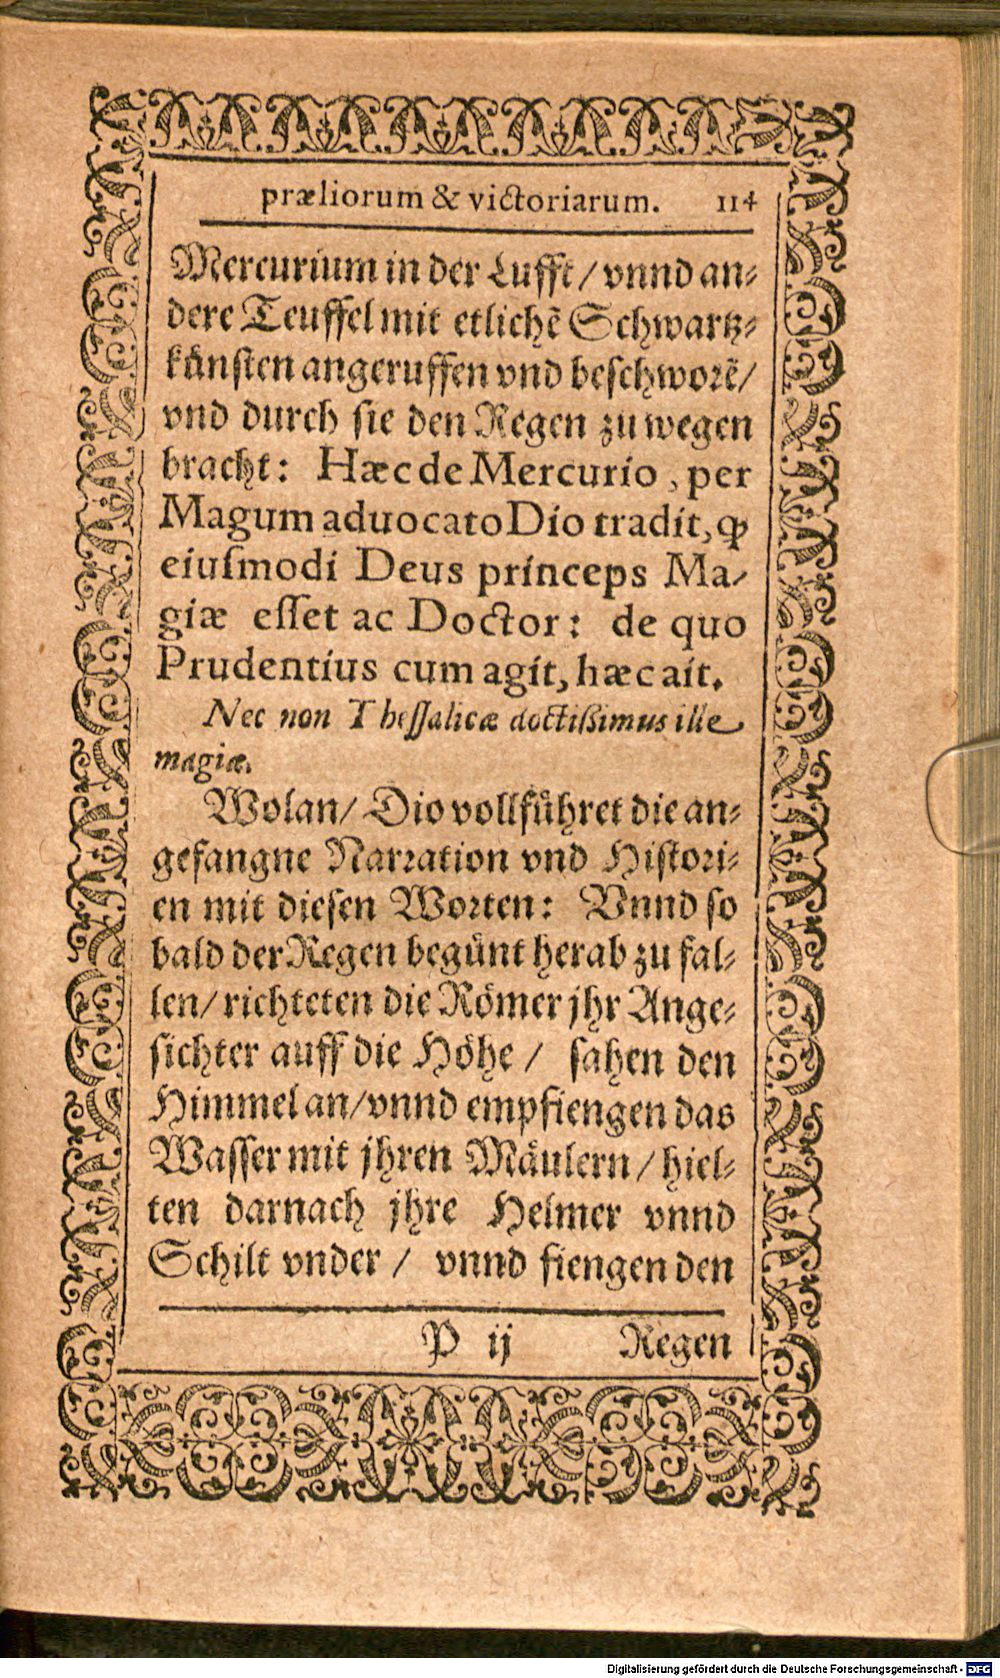 præliorum & victoriarum. 114
Mercurium in der Lufft / vnnd an⸗
dere Teuffel mit etlichẽ Schwartz⸗
kuͤnsten angeruffen vnd beschworẽ/
vnd durch sie den Regen zu wegen
bracht: Hæc de Mercurio, per
Magum aduocato Dio tradit, ꝙ
eiusmodi Deus princeps Ma⸗
giæ esset ac Doctor: de quo
Prudentius cum agit, hæc ait.
Nec non Thessalicæ doctißimus ille
magiæ.
Wolan/ Dio vollfuͤhret die an⸗
gefangne Narration vnd Histori⸗
en mit diesen Worten: Vnnd so
bald der Regen beguͤnt herab zu fal⸗
len/ richteten die Roͤmer jhr Ange⸗
sichter auff die Hoͤhe / sahen den
Himmel an/vnnd empfiengen das
Wasser mit jhren Maͤulern / hiel⸗
ten darnach jhre Helmer vnnd
Schilt vnder / vnnd fiengen den
P ij Regen
Digitalisierung gefördert durch die Deutsche Forschungsgemeinschaft - DFG